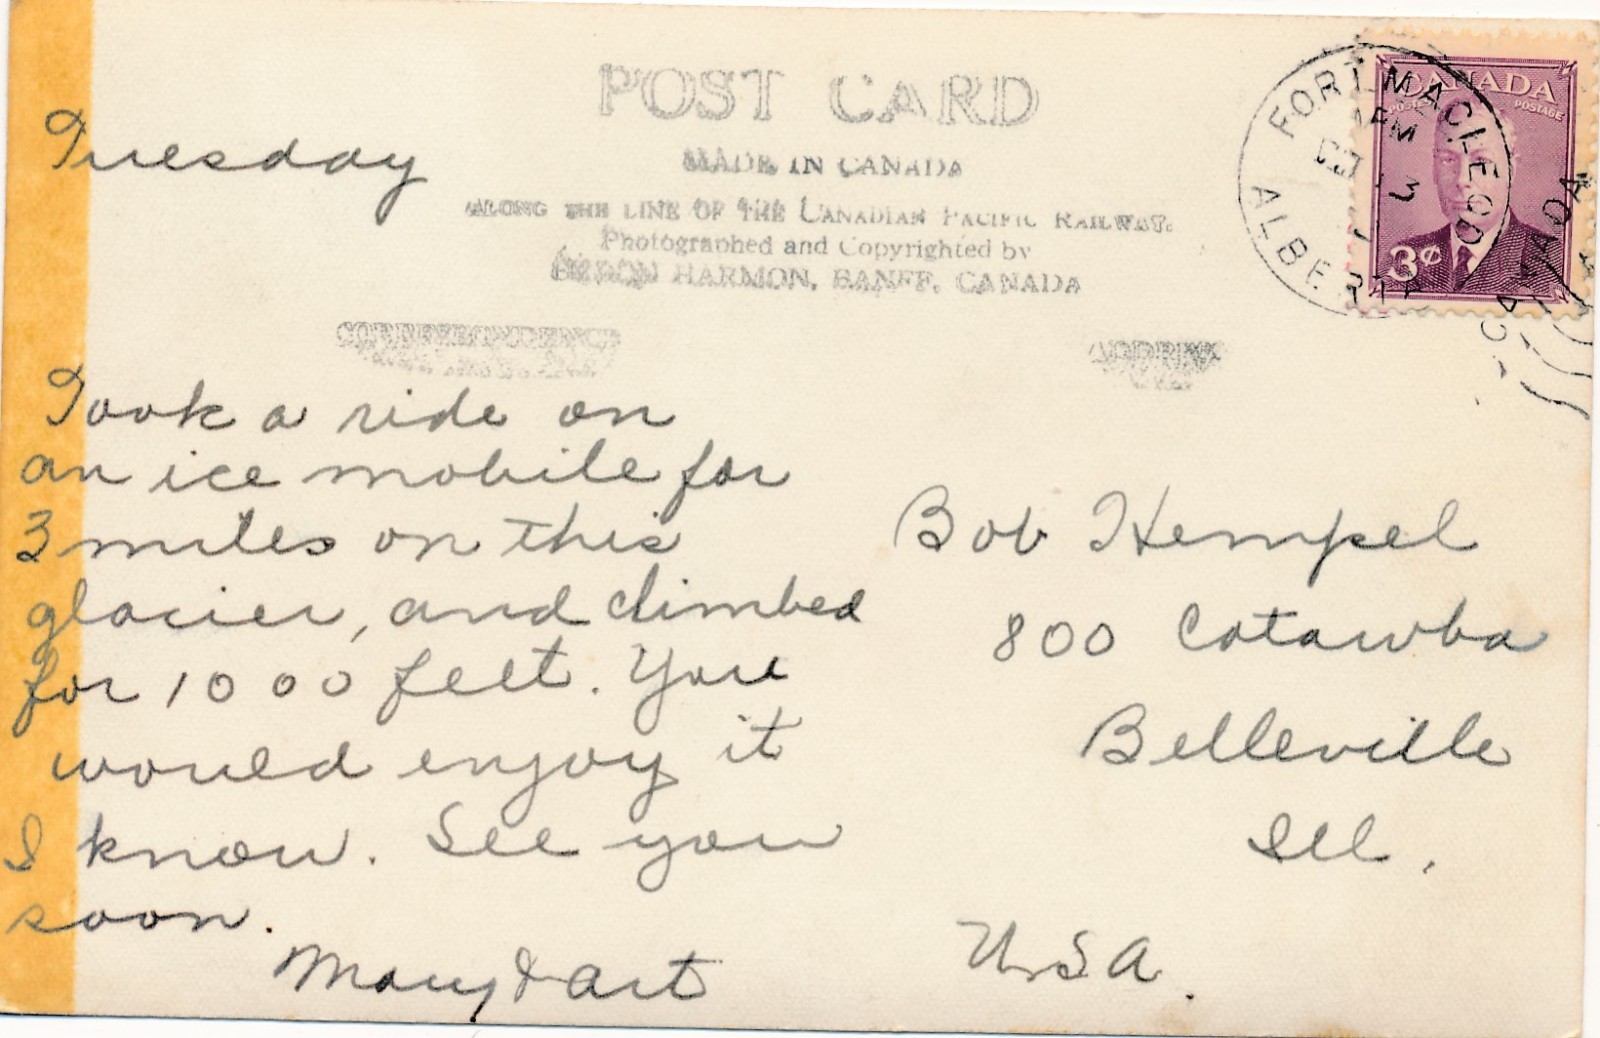 POST CARD
MADE IN CANADA
ALONG THE LINE OF THE CANADIAN PACIFIC RAILWAY.
Photographed and Copyrighted by
BYRON HARMON, BANFF, CANADA
CORRESPONDENCE
ADDRESS
CANADA
POSTES POSTAGE
3¢
FORT MACLEOD
PM
ALBERTA
CANADA
Tuesday
Took a ride on
an ice mobile for
3 miles on this
glacier, and climbed
for 1000 feet. You
would enjoy it
I know. See you
soon.
Mary & Art
Bob Hempel
800 Catawba
Belleville
Ill.
USA.